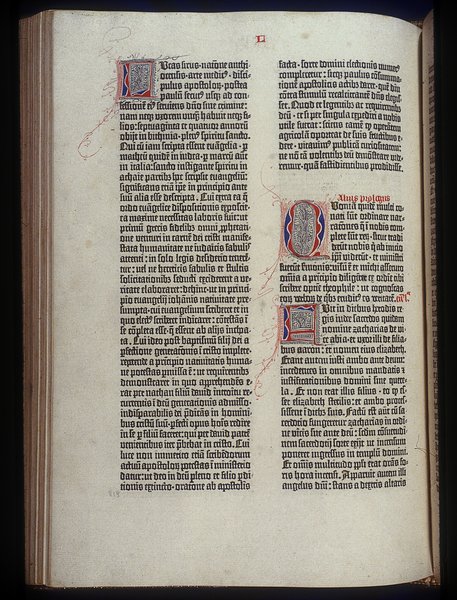 L
Lucas sirus·natione anthi
ocensis·arte medic⁹·disci
pulus apostolorum·postea
paulū secut⁹ usq; ad con
fessionē ei⁹ serviens dño sine crimine:
nam neq; uxorem unq̄ habuit neq; fi
lios: septuaginta et quatuor annorū
obijt in bithinia·plen⁹ spiritu sancto.
Qui cū iam scripta essent evāgelia·p
matheū quidē in iudea·p marcū aūt
in italia: sancto instigante spiritu in
achaie partib⁹ hoc scripsit evangeliū:
significans etiā ip̄e in principio ante
suū alia esse descripta. Cui extra ea q̄
ordo evāgelice dispositionis exposcit·
ea maxime necessitas laboris fuit: ut
primū grecis fidelib⁹ omni prophetati
one venturi in carnē dei cristi manifes
tata humanitate ne iudaicis fabulis
attenti: in solo legis desiderio tene-
rent²: vel ne hereticis fabulis et stultis
solicitationib⁹ seducti excideret a ve-
ritate elaboraret: dehinc·ut in princi-
pio evangelij iohānis nativitate pre-
sumpta·cui evangeliū scriberet et in
quo elect⁹ scriberet indicaret: cōtestās ī
se cōpleta esse·q̄ essent ab alijs inchoa-
ta. Cui ideo post baptismū filij dei a
pfectione generatiōnis ī cristo implete·
repetēde a principio nativitatis huma-
ne potestas pmissa ē: ut requirentib⁹
demonstraret in quo apprehendēs e-
rat per nathan filiū david introitu re-
currentis ī deū generationis admisso·
indisparabilis dei p̄dicās in homini-
bus cristū suū·pfecti opus hoīs redire
in se p filiū faceret: qui per david patrē
venientibus iter p̄bebat in cristo. Cui
luce non immerito etiā scribēdorum
actuū apostolorū potestas ī ministerio
datur: ut deo in deū pleno et filio pdi-
tionis extincto·oratione ab apostolis
facta·sorte domini electionis numer⁹
compleretur: sicq; paulus cōsumma-
tionē apostolicis actib⁹ daret·quē diu
cōtra stimulū recalcitrantē dñs elegis-
set. Quod et legentib⁹ ac requirentib⁹
deū·et si per singula expediri a nobis
utile fuerat: sciens tamē q̄ operantem
agricolā oporteat de suis fructib⁹ e-
dere·vitavim⁹ publicā curiositatem:
ne nō tā volentib⁹ deū demōstrare vide-
remur·quā fastidientibus prodidisse.
Alius prologus
Quoniā quidē multi co-
nati sūt ordinare nar-
rationes q̄ i nobis com-
plete sūt rerū·sicut tradi-
derūt nobis q̄ ab inicio
ip̄i viderūt·et ministri
fuerūt sermonis: visū ē et michi assecuto
omīa a principio diligēter ex ordie tibi
scribere optie theophile: ut cognoscas
eorū verborū de qb⁹ erudit⁹ es veritatē.
Fuit in diebus herodis re-
gis iude sacerdos quidam
nomine zacharias de vi-
ce abia·et uxor illi de filia-
bus aaron: et nomen eius elizabeth.
Erant autem iusti ambo ante deum:
incedentes in omnibus mandatis et
iustificationibus domini sine quere-
la. Et non erat illis filius·eo q̄ es-
set elizabeth sterilis: et ambo proces-
sissent ī dieb⁹ suis. Factū est autē cū sa-
cerdotio fungeretur zacharias in ordi-
ne vicis sue ante deū: scdm cōsuetudi-
nem sacerdotij sorte exijt ut incensum
poneret ingressus in templū domini.
Et omīs multitudo ppli erat orās fo-
ris hora incensi. Apparuit autem illi
angelus dñi: stans a dextris altaris